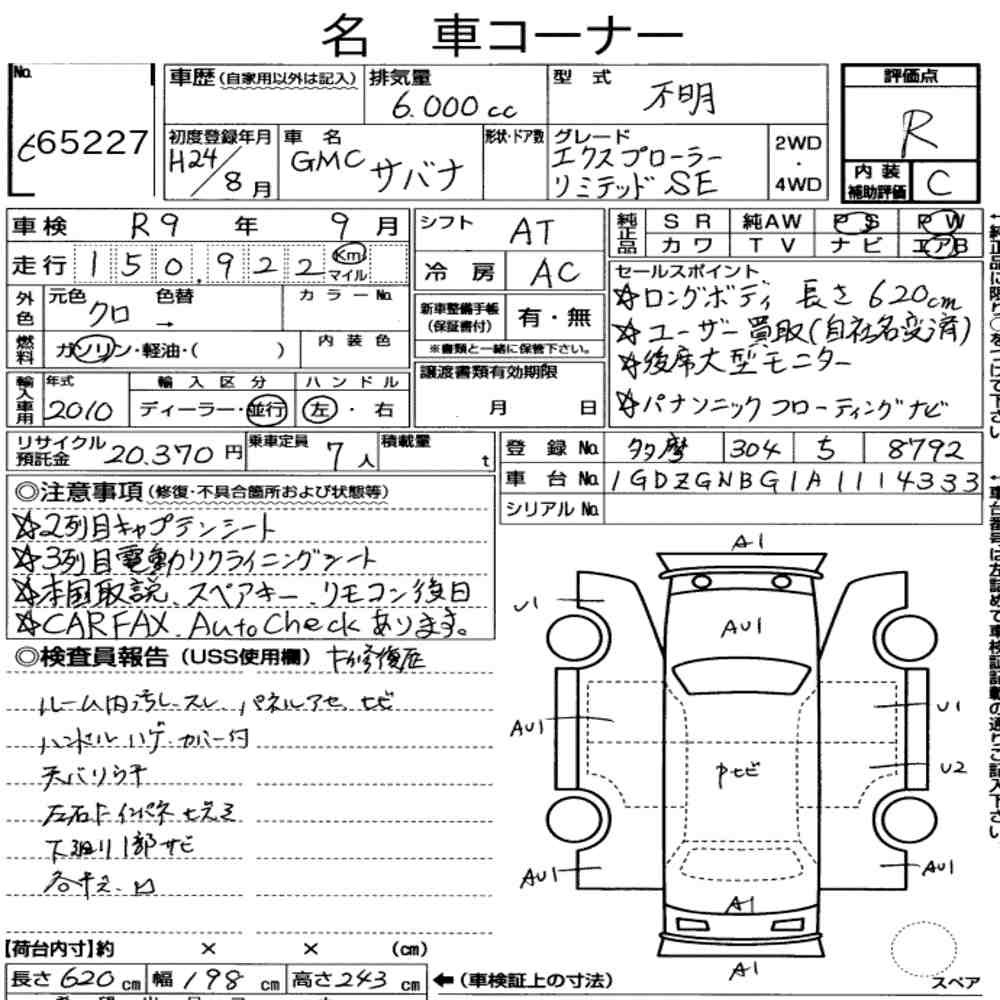 名 車コーナー
No.
65227
車歴(自家用以外は記入)
排気量
6.000cc
型式
不明
評価点
R
初度登録年月
H24/8月
車名
GMC サバナ
形状・ドア数
グレード
エクスプローラー
リミテッド SE
2WD
・
4WD
内装
補助評価
C
車検 R9年 9月
走行 150,922 Km マイル
外色
元色 色替 カラーNo.
クロ →
燃料
ガソリン・軽油・( )
内装色
輸入車用
年式
2010
輸入区分
ディーラー・並行
ハンドル
左・右
シフト AT
冷房 AC
新車整備手帳
(保証書付)
有・無
※書類と一緒に保管下さい。
譲渡書類有効期限
月 日
純正品
SR 純AW PS PW
カワ TV ナビ エアB
セールスポイント
☆ロングボディ 長さ620cm
☆ユーザー買取(自社名変済)
☆後席大型モニター
☆パナソニックフローティングナビ
リサイクル
預託金
20.370円
乗車定員
7人
積載量
t
登録No. 多摩 304 ち 8792
車台No. 1GDZGNBG1A1114333
シリアルNo.
◎注意事項(修復・不具合箇所および状態等)
☆2列目キャプテンシート
☆3列目電動リクライニングシート
☆本国取説、スペアキー、リモコン後日
☆CARFAX、AutoCheckあります。
◎検査員報告(USS使用欄)
修復歴
ルーム内汚し、スレ、パネルアセ、セビ
ハンドルハゲ・カバー付
天バリ
下廻り1部サビ
A1
U1
AU1
U1
AU1
Pセビ
U2
AU1
AU1
A1
A1
スペア
【荷台内寸】約 × × (cm)
長さ620cm 幅198cm 高さ243cm
←(車検証上の寸法)